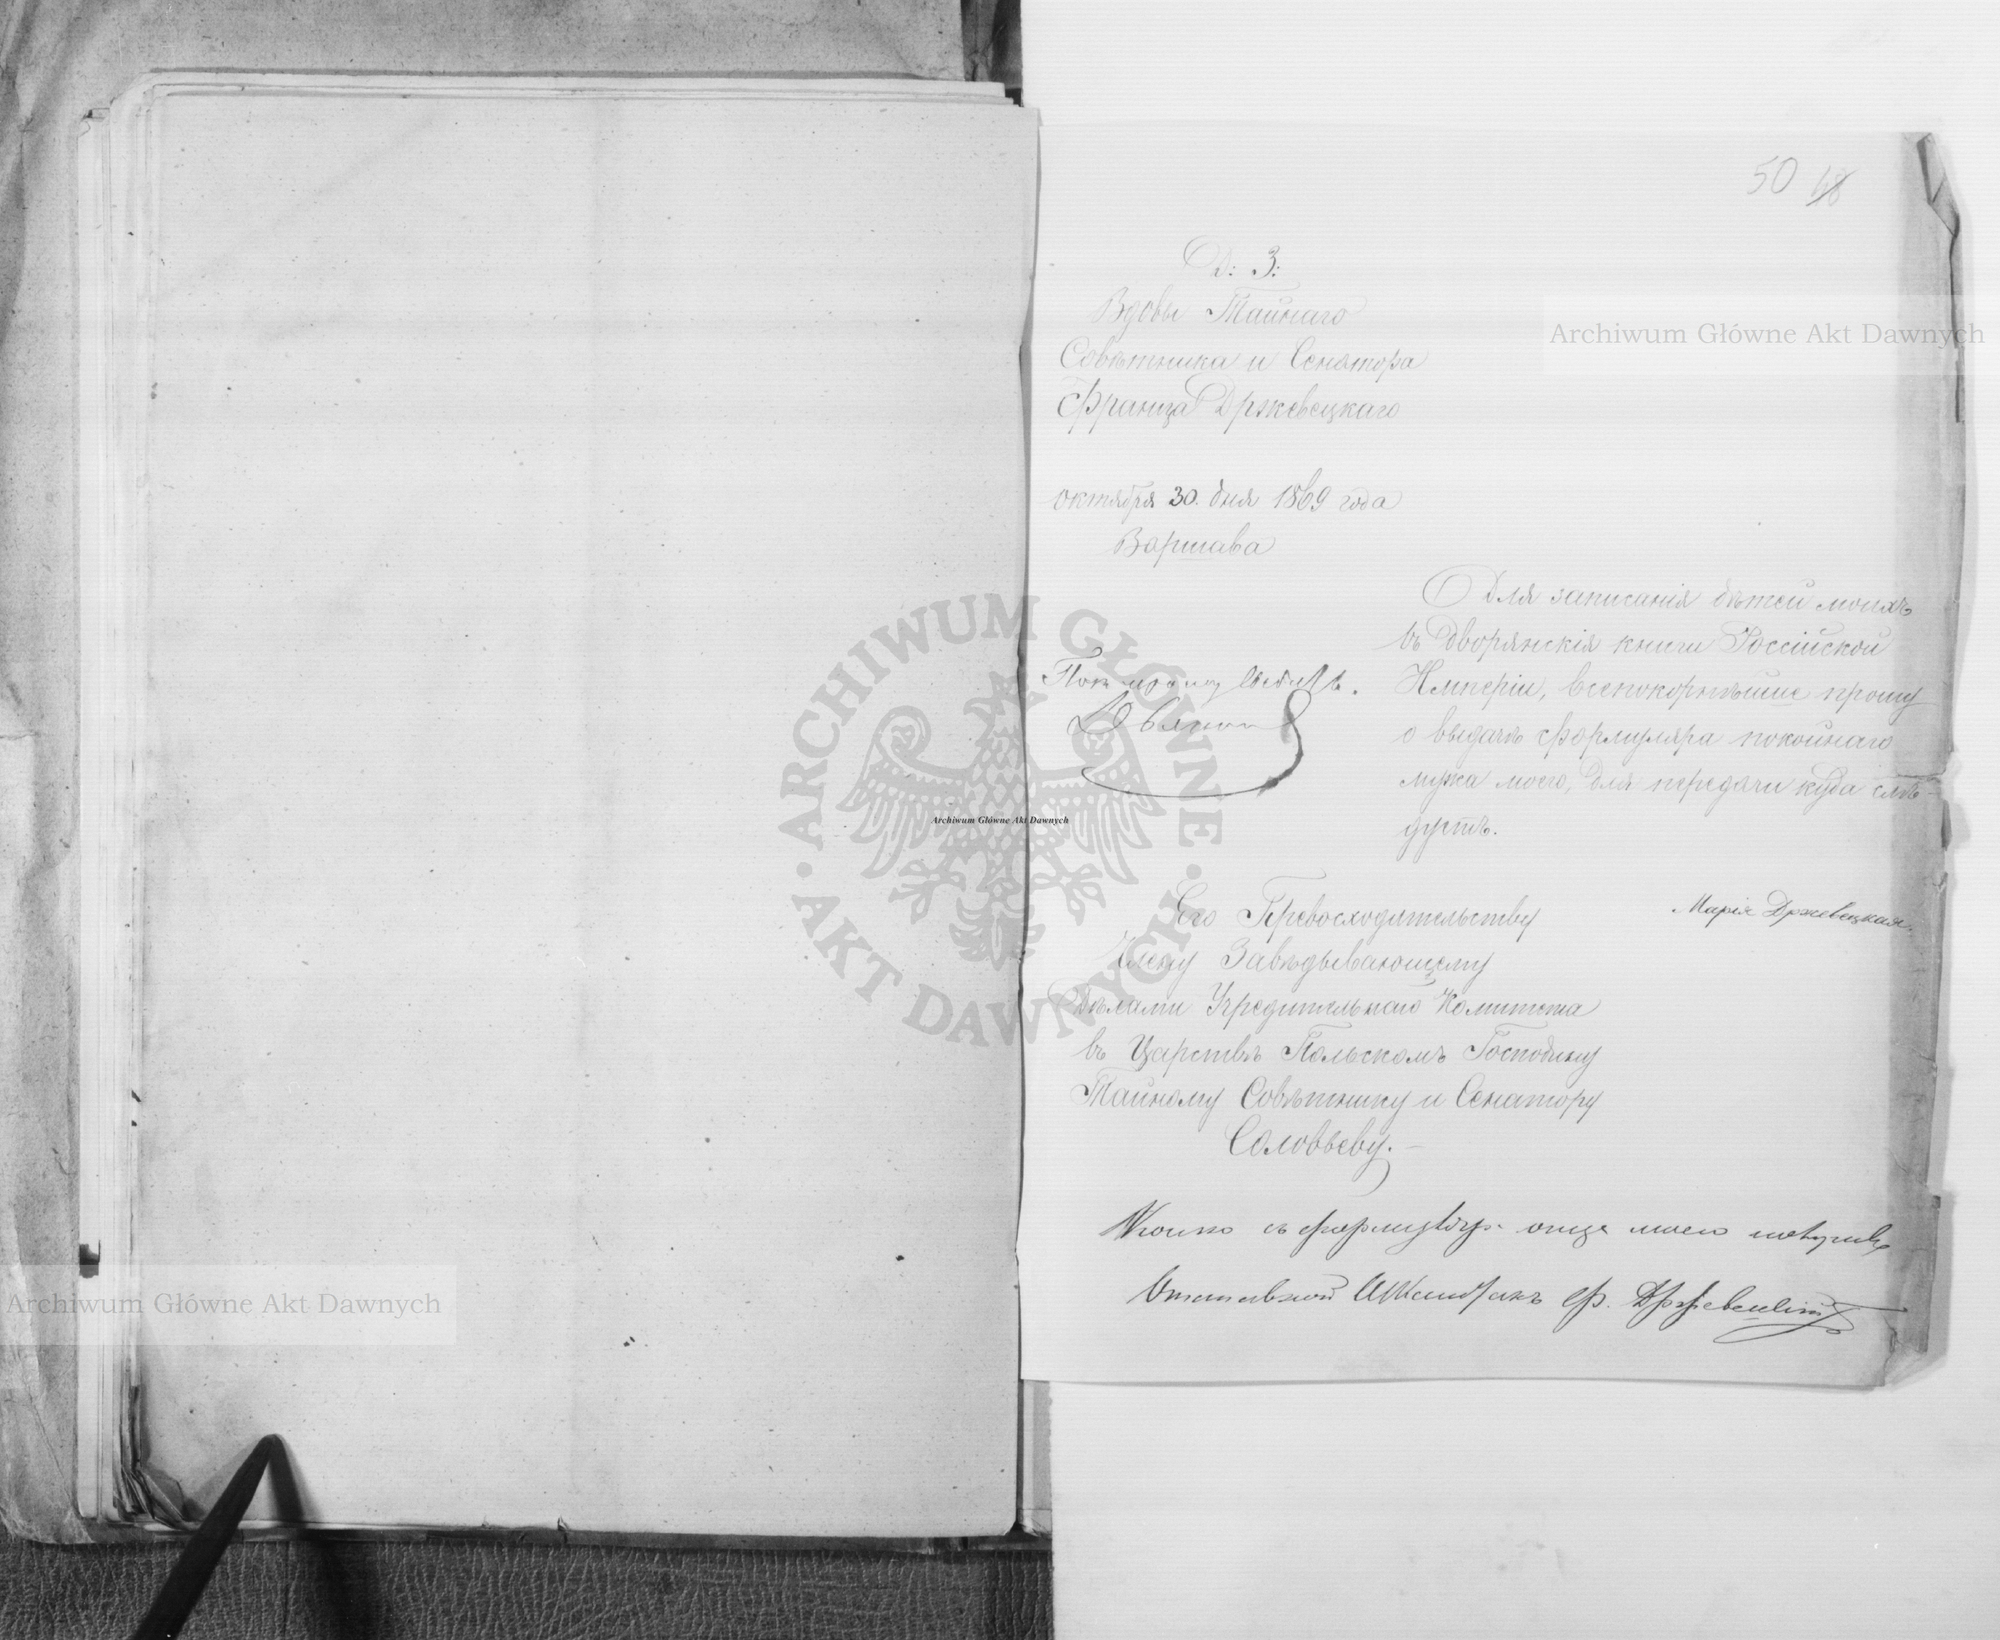 50 48
Д: З:
Вдовы Тайнаго
Совѣтника и Сенатора
Франца Држевецкаго
октября 30. дня 1869 года
Варшава
Для записанія дѣтей моихъ
въ дворянскія книги Россійской
Имперіи, всепокорнѣйше прошу
о выдачѣ формуляра покойнаго
мужа моего, для передачи куда слѣ-
дуетъ.
Марія Држевецкая.
Его Превосходительству
Члену Завѣдывающему
дѣлами Учредительнаго Комитета
въ Царствѣ Польскомъ Господину
Тайному Совѣтнику и Сенатору
Соловьеву.
Копію съ формуляра отца моего получилъ
Отставной Ф. Држевецкій
Archiwum Główne Akt Dawnych
Archiwum Główne Akt Dawnych
Archiwum Główne Akt Dawnych
ARCHIWUM GŁÓWNE · AKT DAWNYCH ·